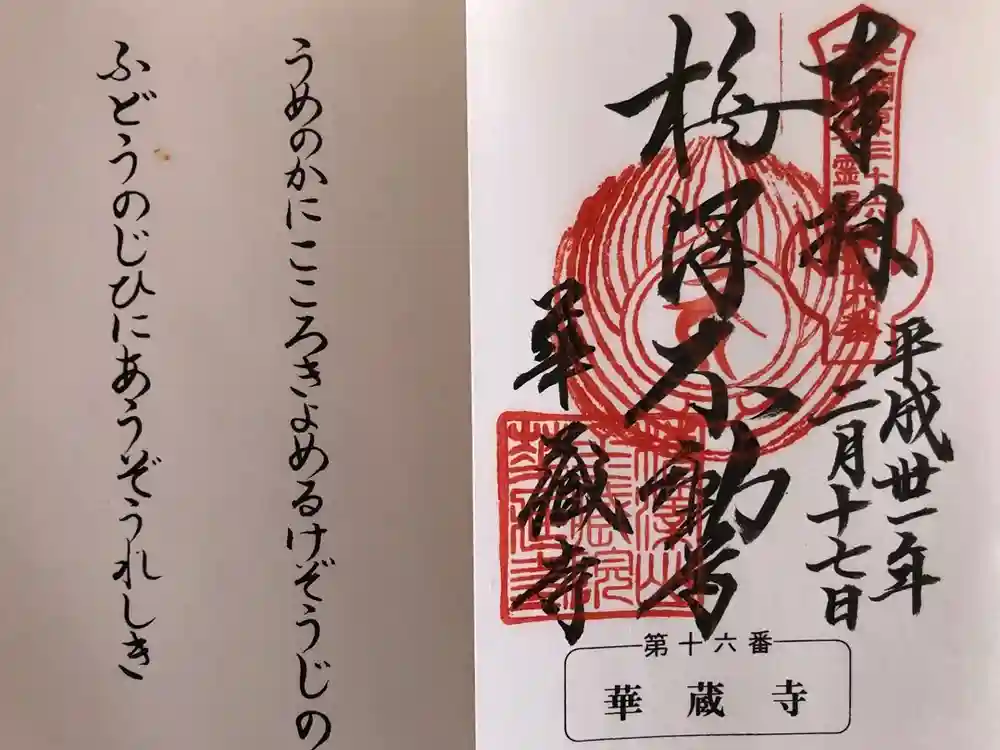 奉拝
平成丗一年
二月十七日
梅澤不動尊
華蔵寺
第十六番
華蔵寺
うめのかにこころきよめるけぞうじの
ふどうのじひにあうぞうれしき